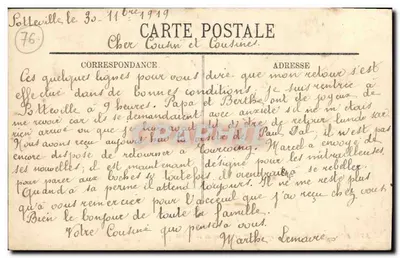 Sotteville, le 30 - 11bre 1919
CARTE POSTALE
76
Cher Cousin et Cousines
CORRESPONDANCE
ADRESSE
Ces quelques lignes pour vous dire que mon retour s'est
effectué dans de bonnes conditions, je suis rentrée à
Sotteville à 9 heures. Papa et Berthe ont de joyeux de
me revoir car ils se demandaient avec anxiété s'il ne m'était
rien arrivé vu que je de retour lundi soir
Nous avons reçu aujourd'hui Paul, il n'est pas
encore disposé de retourner à Tourcoing. Marcel a envoyé de
ses nouvelles, il est maintenant désigné pour les mitrailleuses
pour parer aux boches si toutefois il voudraient se rebiller.
Quand à sa perme il attend toujours. Il ne me reste plus
qu'à vous remercier pour l'accueil que j'ai reçu chez vous.
Bien le bonjour de toute la famille.
Votre Cousine qui pense à vous.
Marthe Lemaire